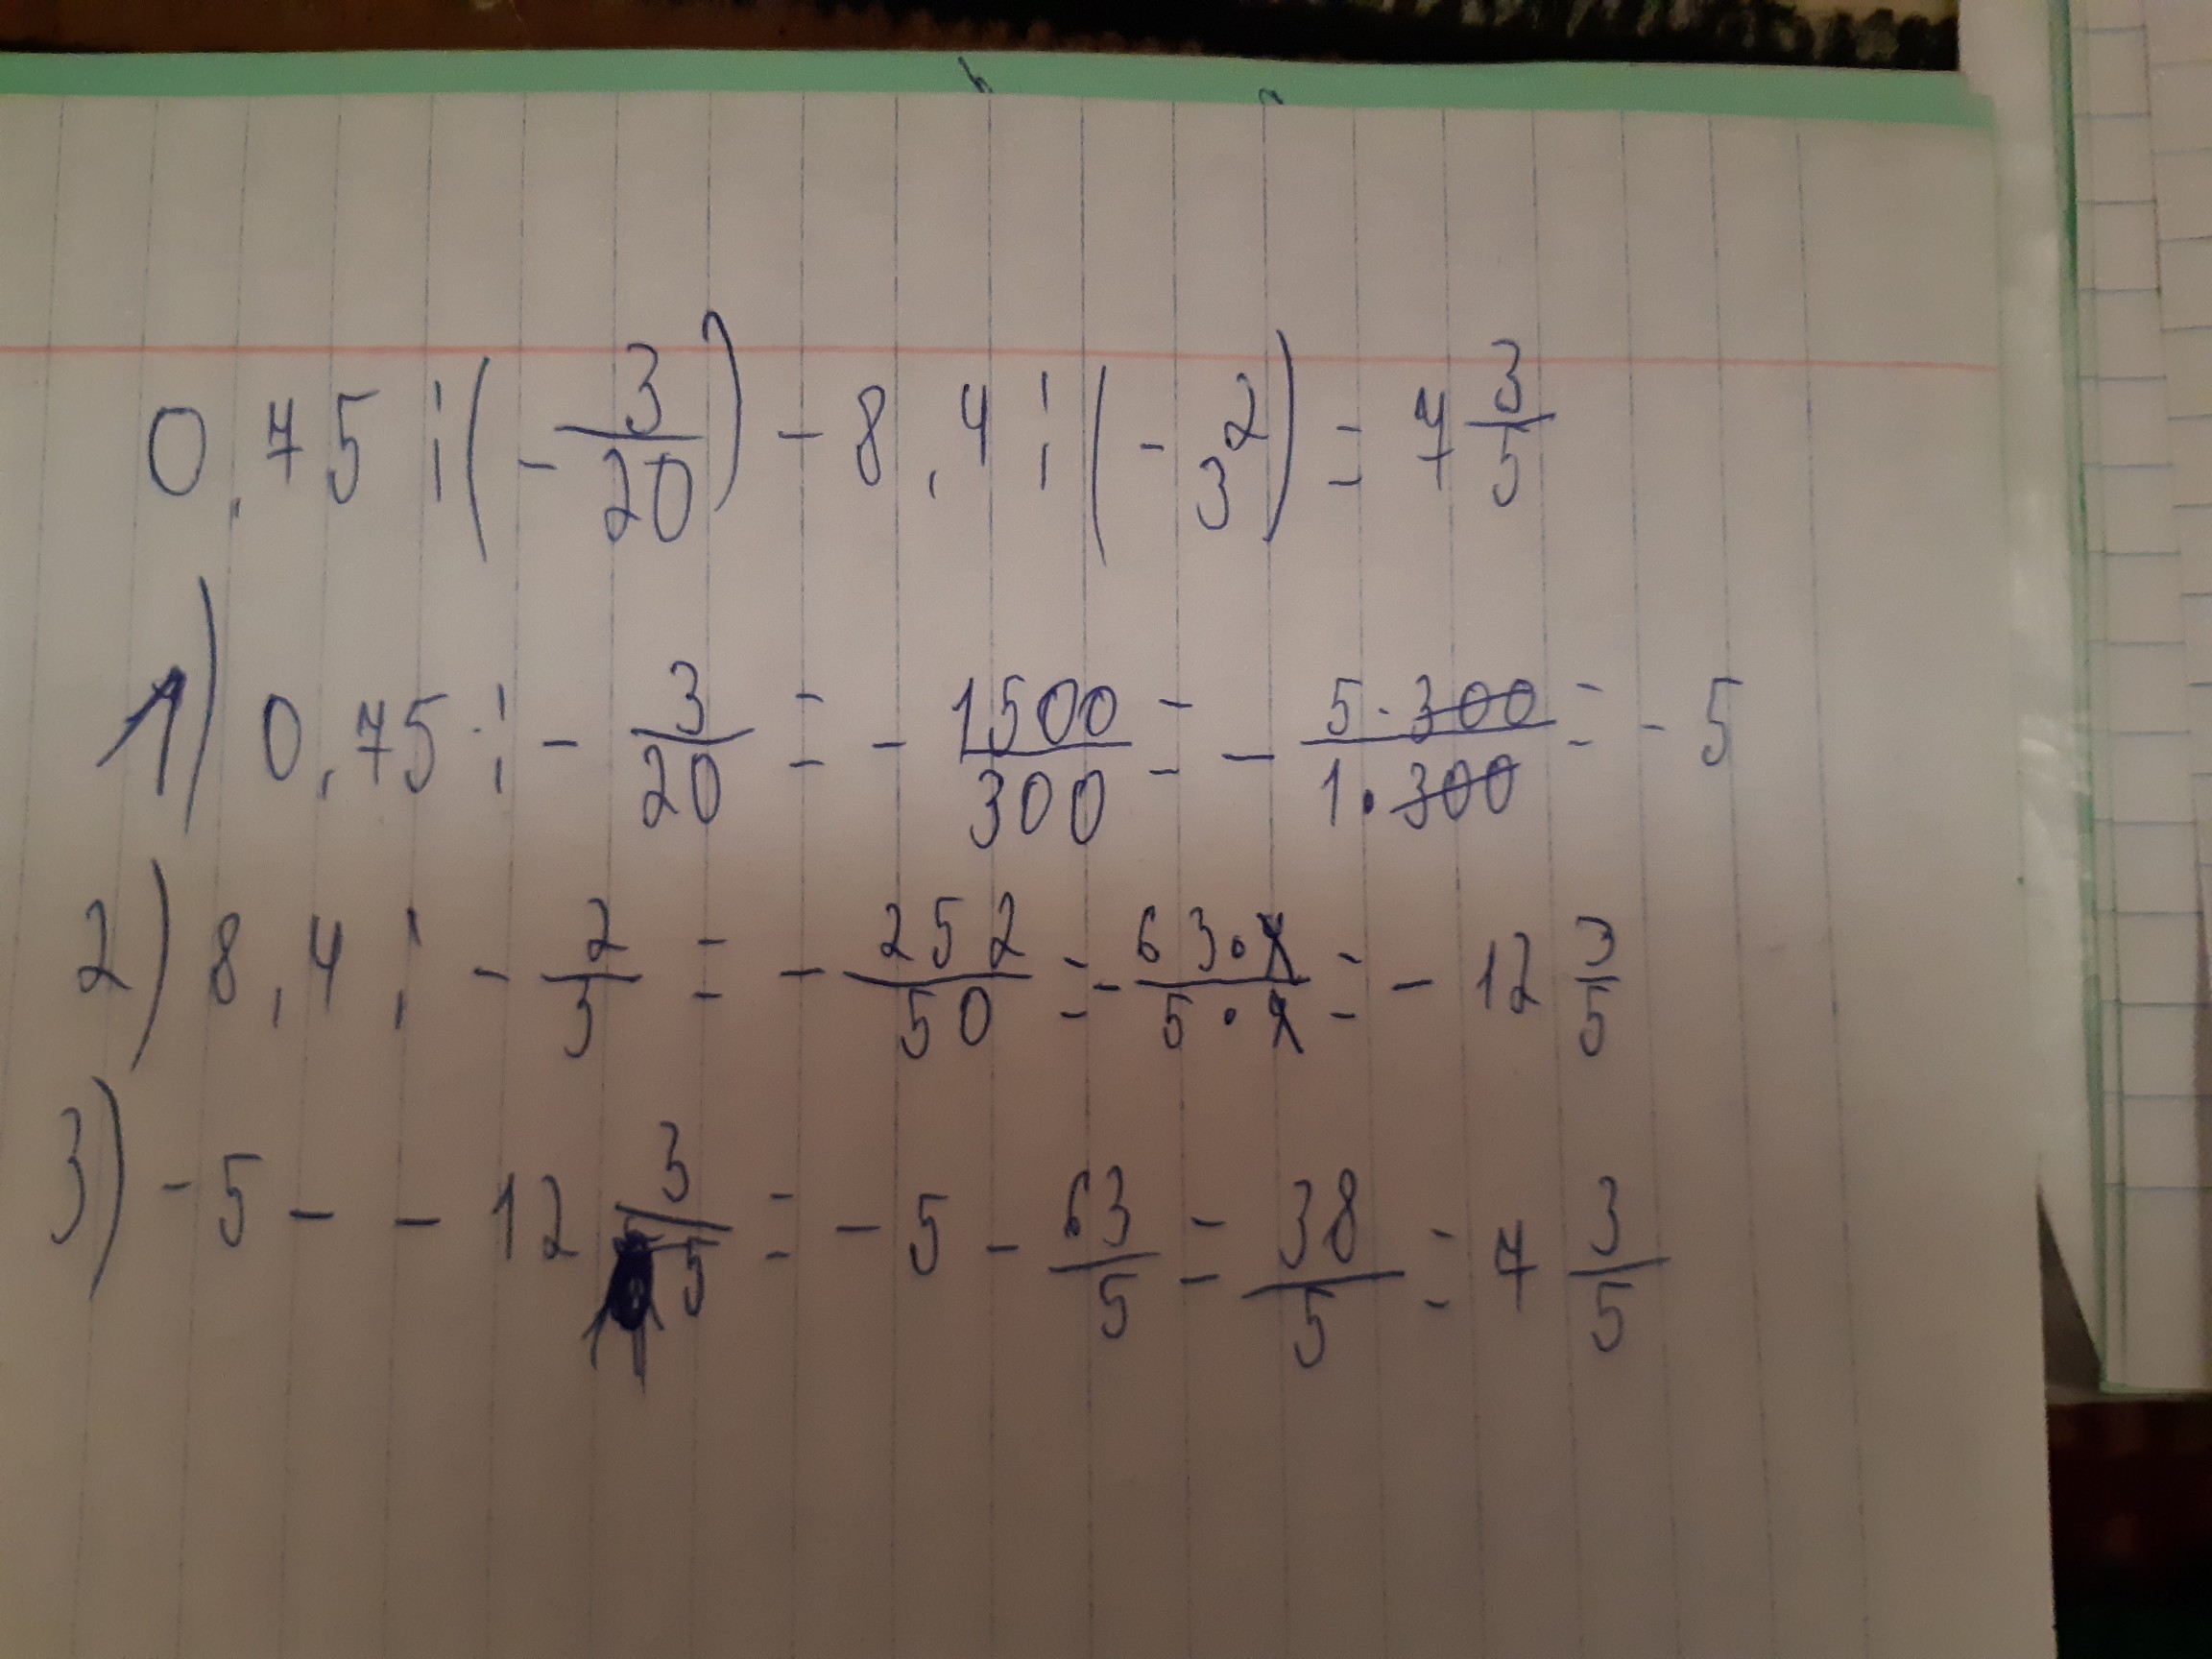 0,75 : (- 3/20) - 8,4 : (- 2/3) = 7 3/5
1) 0,75 : - 3/20 = - 1500/300 = - 5·300/1·300 = - 5
2) 8,4 : - 2/3 = - 252/50 = - 63·4/5·4 = - 12 3/5
3) - 5 - - 12 3/5 = - 5 - 63/5 = 38/5 = 7 3/5